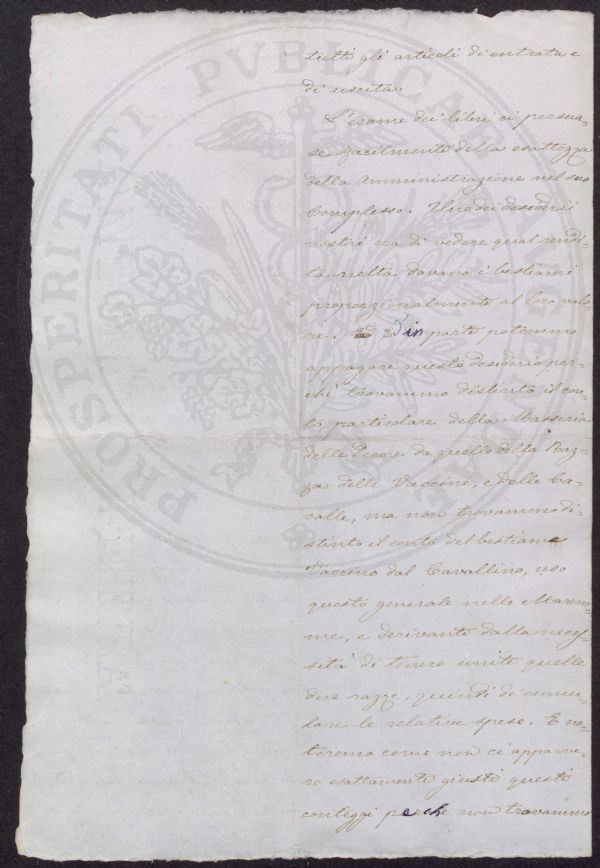 tutti gli articoli di entrata e
di uscita.
L'esame dei libri ci persua-
se facilmente della esattezza
della Amministrazione nel suo
Complesso. Uno dei desiderii
nostri era di vedere qual rendi-
ta netta davano i bestiami
proporzionalmente al loro valo-
re. E d'in parte potemmo
appagare questo desiderio per-
chè trovammo distinto il con-
to particolare della Masseria
delle Pecore da quello della Raz-
za delle Vaccine, e delle Ca-
valle, ma non trovammo di-
stinto il conto del bestiame
Vaccino dal Cavallino, uso
questo generale nelle Marem-
me, e derivante dalla neces-
sità di tenere unite quelle
due razze, quindi di cumu-
lare le relative spese. E no-
teremo come non ci apparve-
ro esattamente giusti questi
conteggi perchè non trovammo
PROSPERITATI PUBLICAE AUGENDAE